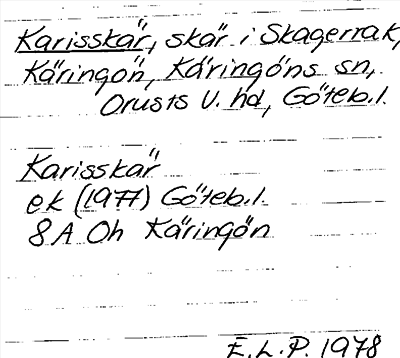 Karisskär, skär i Skagerrak,
Käringön, Käringöns sn,
Orusts V. hd, Göteb.l.
Karisskär
ek (1977) Göteb.l.
8A Oh Käringön
E.L.P. 1978